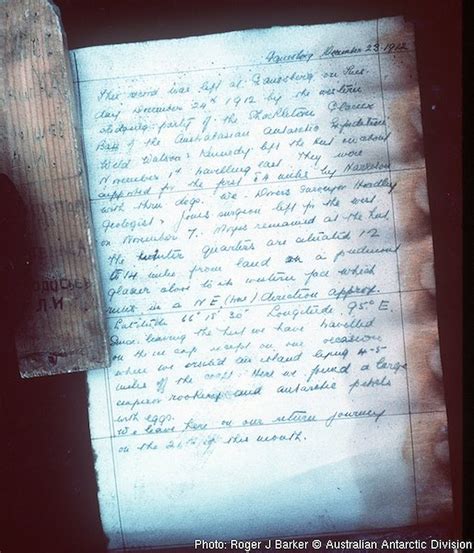 Gaussberg December 23. 1912
This record was left at Gaussberg on Tues
day December 24th 1912 by the western
sledging party of the Shackleton Glacier
Base of the Australasian Antarctic Expedition
Wild Watson & Kennedy left the hut on about
November 1st travelling east. They were
supported for the first 84 miles by Harrisson
with three dogs. We Dovers Surveyor Hoadley
Geologist & Jones surgeon left for the west
on November 7. Moyes remained at the hut.
The winter quarters are situated 12
to 14 miles from land on a
glacier close to its western face which
runs in a N E (true) direction approx.
Latitude 66° 15' 30" Longitude 95° E.
Since leaving the hut we have travelled
on the ice cap except on one occasion
when we visited an island lying 4-5
miles off the coast. Here we found a large
emperor rookery and antarctic petrels
with eggs.
We leave here on our return journey
on the 26th of this month.
ЛИ